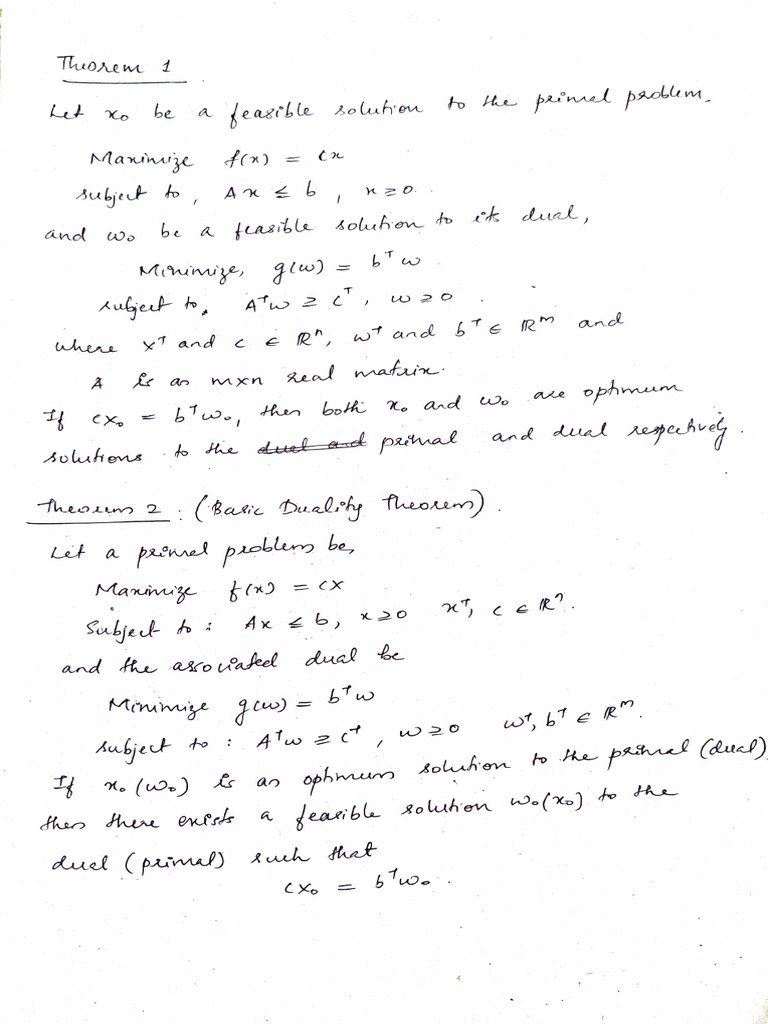 Theorem 1
Let x₀ be a feasible solution to the primal problem.
Maximize f(x) = cx
subject to, Ax ≤ b, x ≥ 0.
and w₀ be a feasible solution to its dual,
Minimize, g(w) = bᵀw
subject to, Aᵀw ≥ cᵀ, w ≥ 0.
where xᵀ and c ∈ ℝⁿ, wᵀ and bᵀ ∈ ℝᵐ and
A is an mxn real matrix.
If cx₀ = bᵀw₀, then both x₀ and w₀ are optimum
solutions to the dual and primal and dual respectively.
Theorem 2 : (Basic Duality Theorem).
Let a primal problem be,
Maximize f(x) = cx
Subject to : Ax ≤ b, x ≥ 0 xᵀ, c ∈ ℝⁿ.
and the associated dual be
Minimize g(w) = bᵀw
subject to : Aᵀw ≥ cᵀ, w ≥ 0 wᵀ, bᵀ ∈ ℝᵐ.
If x₀ (w₀) is an optimum solution to the primal (dual)
then there exists a feasible solution w₀(x₀) to the
dual (primal) such that
cx₀ = bᵀw₀.